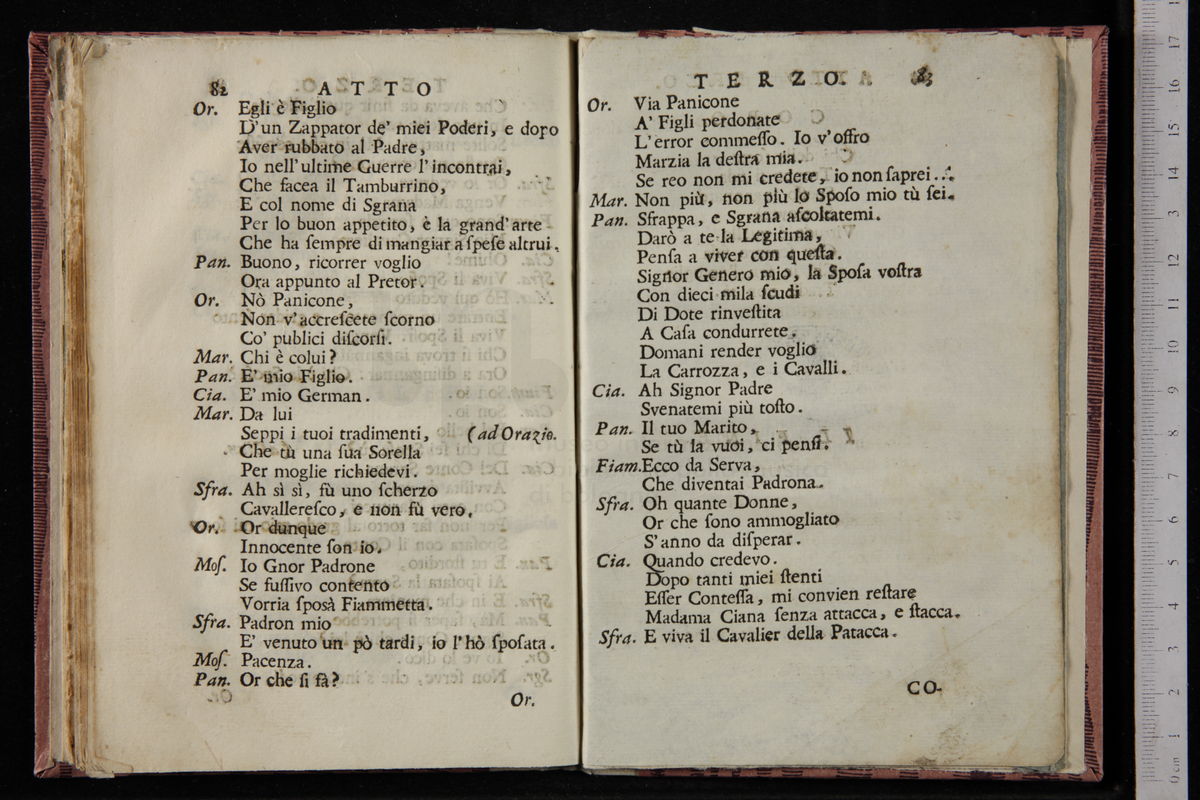 82 ATTO
Or. Egli è Figlio
D'un Zappator de' miei Poderi, e dopo
Aver rubbato al Padre,
Io nell'ultime Guerre l'incontrai,
Che facea il Tamburrino,
E col nome di Sgrana
Per lo buon appetito, è la grand'arte
Che ha ſempre di mangiar a ſpeſe altrui.
Pan. Buono, ricorrer voglio
Ora appunto al Pretor.
Or. Nò Panicone,
Non v'accreſcete ſcorno
Co' publici diſcorſi.
Mar. Chi è colui?
Pan. E' mio Figlio.
Cia. E' mio German.
Mar. Da lui
Seppi i tuoi tradimenti, (ad Orazio.
Che tù una ſua Sorella
Per moglie richiedevi.
Sfra. Ah sì sì, fù uno ſcherzo
Cavallereſco, e non fù vero.
Or. Or dunque
Innocente ſon io.
Moſ. Io Gnor Padrone
Se fuſſivo contento
Vorria ſposà Fiammetta.
Sfra. Padron mio
E' venuto un pò tardi, io l'hò ſpoſata.
Moſ. Pacenza.
Pan. Or che ſi fà?
Or.
TERZO. 83
Or. Via Panicone
A' Figli perdonate
L'error commeſſo. Io v'offro
Marzia la deſtra mia.
Se reo non mi credete, io non ſaprei...
Mar. Non più, non più lo Spoſo mio tù ſei.
Pan. Sfrappa, e Sgrana aſcoltatemi.
Darò a te la Legitima,
Penſa a viver con queſta.
Signor Genero mio, la Spoſa voſtra
Con dieci mila ſcudi
Di Dote rinveſtita
A Caſa condurrete.
Domani render voglio
La Carrozza, e i Cavalli.
Cia. Ah Signor Padre
Svenatemi più toſto.
Pan. Il tuo Marito,
Se tù la vuoi, ci penſi.
Fiam. Ecco da Serva,
Che diventai Padrona.
Sfra. Oh quante Donne,
Or che ſono ammogliato
S'anno da diſperar.
Cia. Quando credevo.
Dopo tanti miei ſtenti
Eſſer Conteſſa, mi convien reſtare
Madama Ciana ſenza attacca, e ſtacca.
Sfra. E viva il Cavalier della Patacca.
CO-